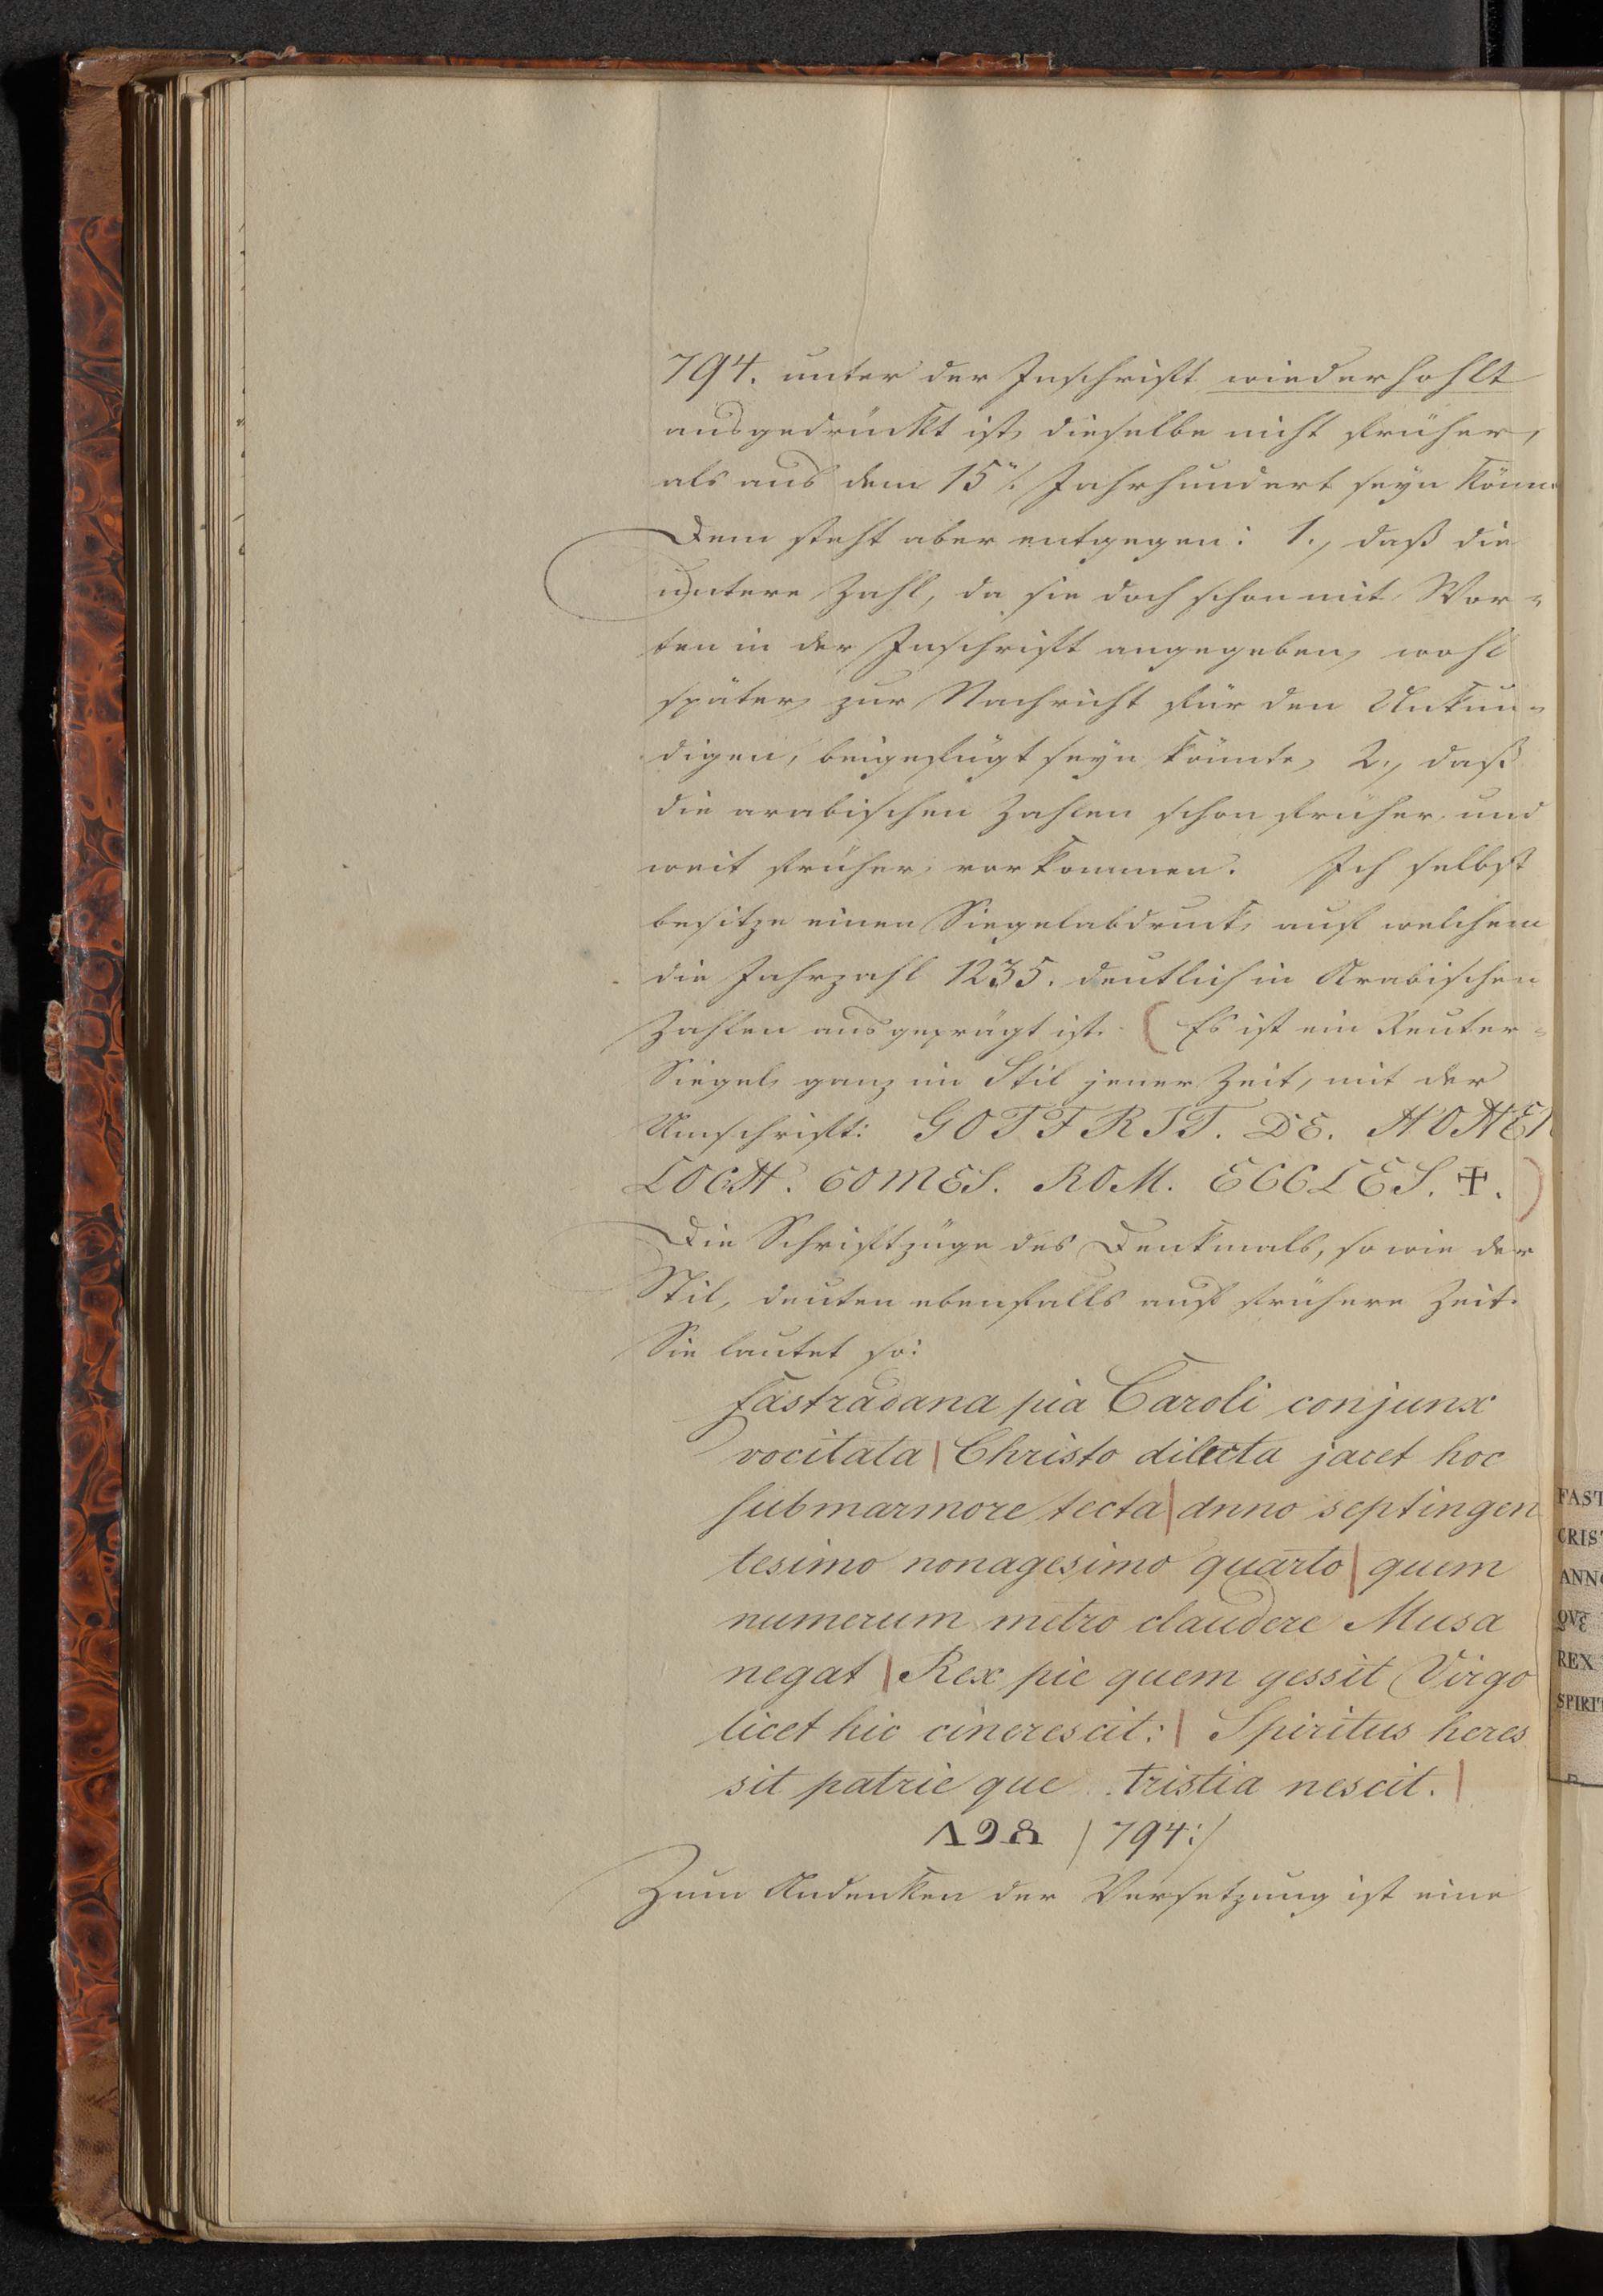 794. unter der Inschrift wiederhohlt
ausgedrückt ist, dieselbe nicht früher,
als aus dem 15. Jahrhundert seyn könn
Dem steht aber entgegen: 1., daß die
untere Zahl, da sie doch schon mit Wor-
ten in der Inschrift angegeben, wohl
später, zur Nachricht für den Unkun-
digen, beigefügt seyn könnte, 2., daß
die arabischen Zahlen schon früher und
weit früher, vorkommen. Ich selbst
besitze einen Siegelabdruck, auf welchem
die Jahrzahl 1235. deutlich in Arabischen
Zahlen ausgeprägt ist. (Es ist ein Reuter-
Siegel, ganz im Stil jener Zeit, mit der
Umschrift: GOTFRIT. DE. HOHEN
LOCH. COMES. ROM. ECCLES. ✠.)
Die Schriftzüge des Denkmals, so wie der
Stil, deuten ebenfalls auf frühere Zeit.
Sie lautet so:
Fastradana pia Caroli conjunx
vocitata | Christo dilecta jacet hoc
sub marmore tecta | Anno septingen
tesimo nonagesimo quarto | quem
numerum metro claudere Musa
negat | Rex pie quem gessit Virgo
licet hic cinerescit: | Spiritus heres
sit patrie que tristia nescit. |
Λ9ꝸ /794:/
Zum Andenken der Versetzung ist eine
FAST
CRIS
ANN
QVE
REX
SPIRI